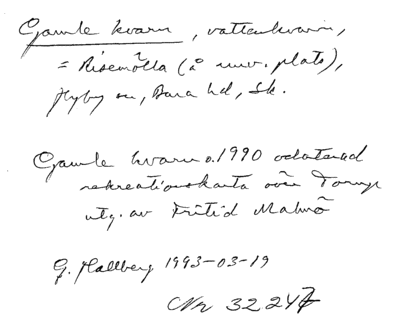 Gamle kvarn, vattenkvarn,
= Risemölla (å nuv. plats),
Hyby sn, Bara hd, Sk.
Gamle kvarn o. 1990 odaterad
rekreationskarta över Torup
utg. av Fritid Malmö
G. Hallberg 1993-03-19
Nr 32247